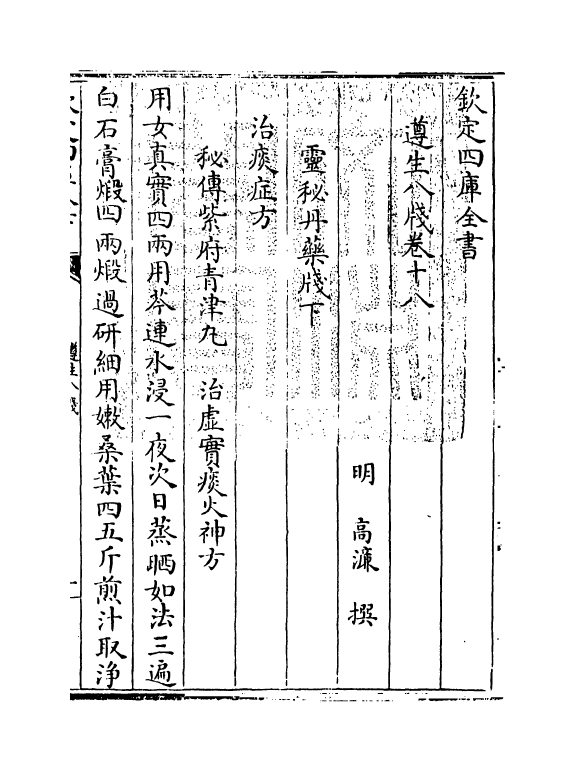 欽定四庫全書
遵生八牋卷十八
明 高濂 撰
靈秘丹藥牋下
治痰症方
秘傳紫府青津丸 治虛實痰火神方
用女真實四兩用芩連水浸一夜次日蒸晒如法三遍
白石膏煅四兩煅過研細用嫩桑葉四五斤煎汁取淨
遵生八牋